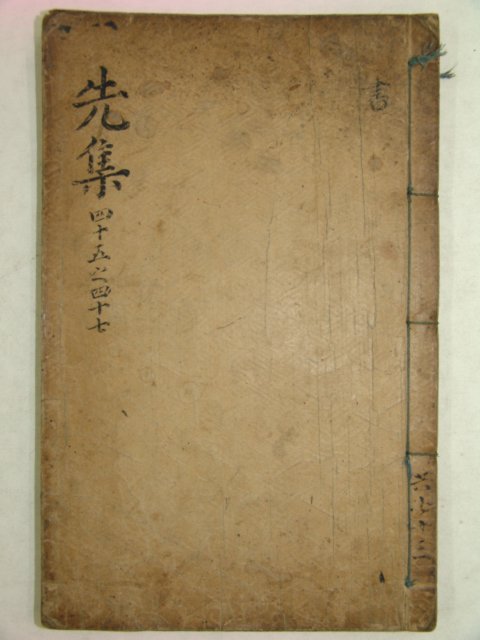 書
先集
四十五之四十七